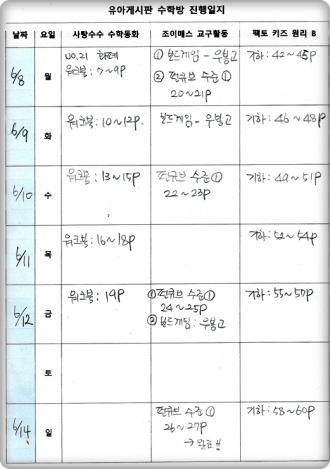 유아게시판 수학방 진행일지
날짜 요일 사탕수수 수학동화 조이매스 교구활동 팩토 키즈 원리 B
6/8 월
NO.21 화폐
워크북: 7~9P
① 보드게임 - 우봉고
② 펀큐브 수준①
20~21P
기하: 42~45P
6/9 화
워크북: 10~12P.
보드게임 - 우봉고
기하: 46~48P
6/10 수
워크북: 13~15P
펀큐브 수준①
22~23P
기하: 49~51P
6/11 목
워크북: 16~18P
기하: 52~54P
6/12 금
워크북: 19P
① 펀큐브 수준①
24~25P
② 보드게임: 우봉고
기하: 55~57P
토
6/14 일
펀큐브 수준①
26~27P
→ 완료!!
기하: 58~60P